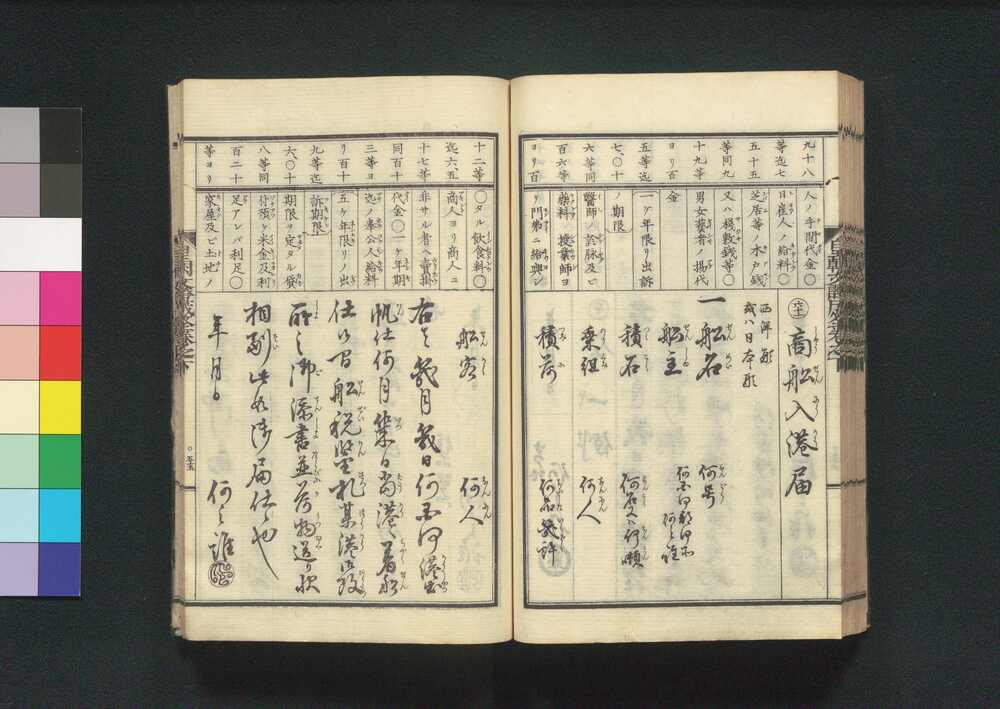 九十八
等迄七
五十五
等同九
十九等
ヨリ百
五等迄
七〇十
六等同
百六等
ヨリ百
人ノ手間代金〇
日雇人ノ給料〇
芝居等ノ木戸銭
又ハ桟敷銭等〇
男女藝者ノ揚代
金
一ケ年限リ出訴
ノ期限
醫師ノ診脉及ヒ
藥料〇授業師ヨ
リ門弟ニ給與シ
六十三 商船入港届
西洋形
或ハ日本形
一 船名 何号
船主 何国何郡何所 何之誰
積石 何石又ハ何噸
乗組 何人
積荷 何品若許
十二等
迄六五
十七等
同百十
三等ヨ
リ百十
九等迄
六〇十
八等同
百二十
等ヨリ
〇タル飲食料〇
商人ヨリ商人ニ
非サル者ヘ賣掛
代金〇一ケ年期
迄ノ奉公人給料
五ケ年限リノ出
訴期限
期限ヲ定タル貸
付預ケ米金及利
足アレバ利足〇
家屋及ビ土地ノ
船客 何人
右者幾月幾日何国何港出
帆仕何月第日当港ヘ着船
仕候間船税鑑札某港役
所之御添書並荷物送り状
相副此如御届仕候也
年月日 何之誰
〇五十五